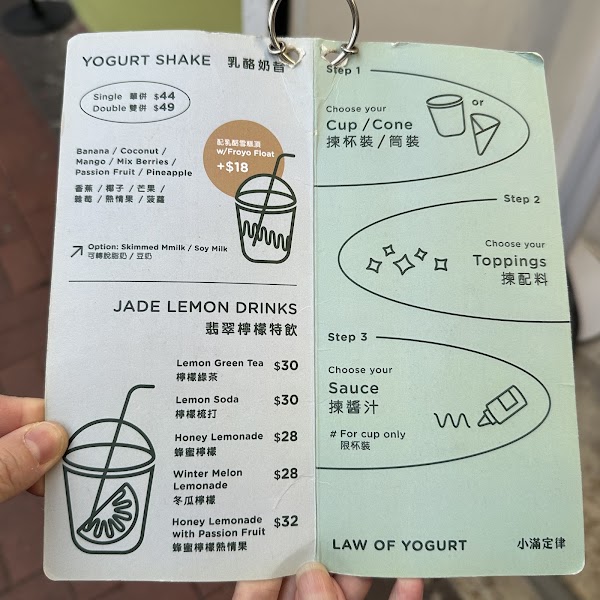 YOGURT SHAKE 乳酪奶昔
Single 單併 $44
Double 雙併 $49
配乳酪雪糕頂
w/Froyo Float
+$18
Banana / Coconut /
Mango / Mix Berries /
Passion Fruit / Pineapple
香蕉 / 椰子 / 芒果 /
雜莓 / 熱情果 / 菠蘿
Option: Skimmed Mmilk / Soy Milk
可轉脫脂奶 / 豆奶
JADE LEMON DRINKS
翡翠檸檬特飲
Lemon Green Tea $30
檸檬綠茶
Lemon Soda $30
檸檬梳打
Honey Lemonade $28
蜂蜜檸檬
Winter Melon
Lemonade $28
冬瓜檸檬
Honey Lemonade $32
with Passion Fruit
蜂蜜檸檬熱情果
Step 1
Choose your
Cup / Cone
揀杯裝 / 筒裝
or
Step 2
Choose your
Toppings
揀配料
Step 3
Choose your
Sauce
揀醬汁
# For cup only
限杯裝
LAW OF YOGURT 小滿定律